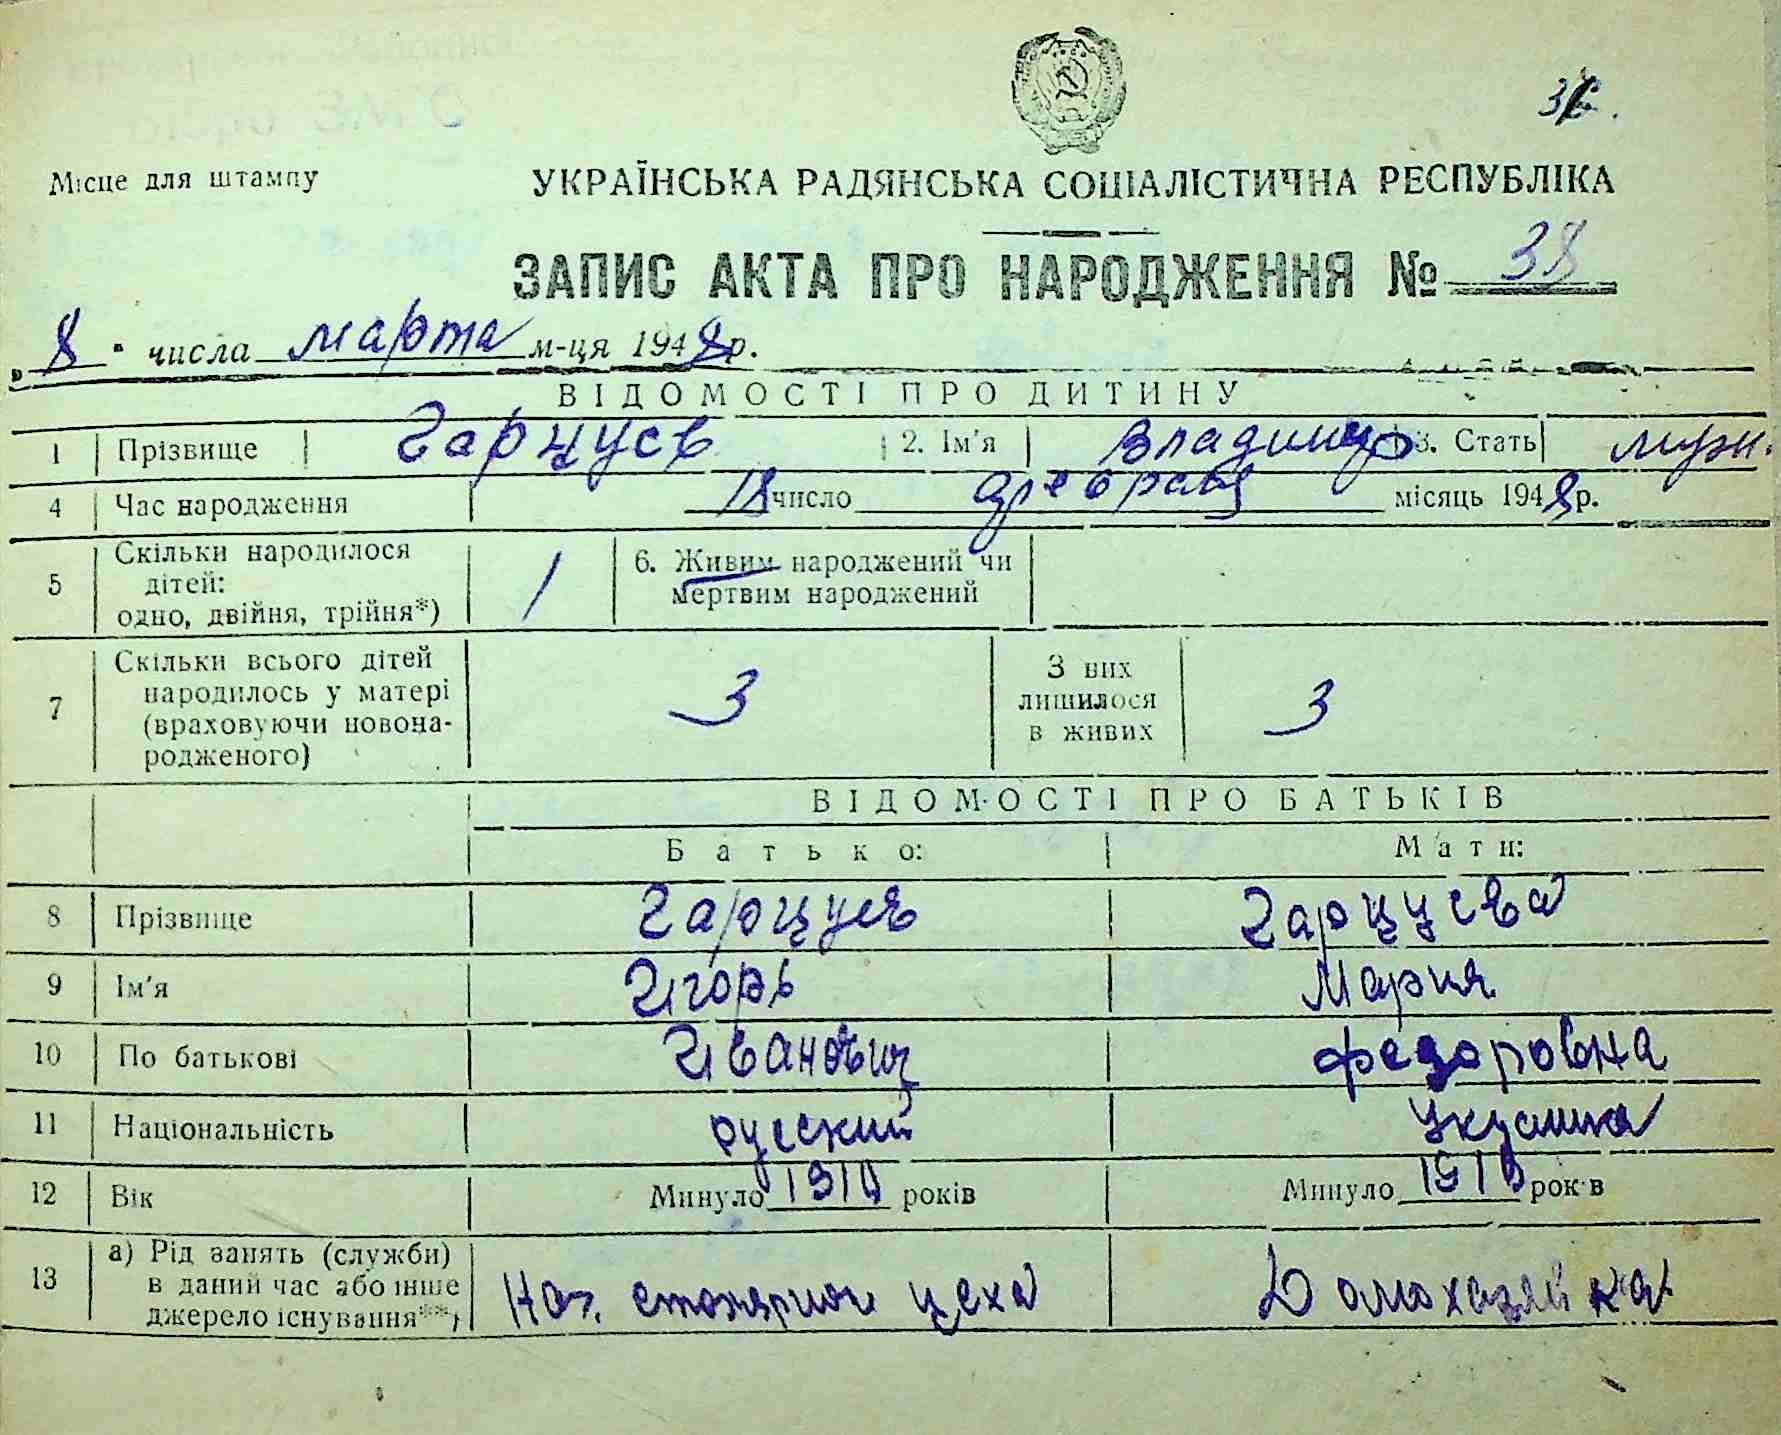 38.
Місце для штампу
УКРАЇНСЬКА РАДЯНСЬКА СОЦІАЛІСТИЧНА РЕСПУБЛІКА
ЗАПИС АКТА ПРО НАРОДЖЕННЯ № 38
„8" числа марта м-ця 1948 р.
ВІДОМОСТІ ПРО ДИТИНУ
1 Прізвище Гарцуев 2. Ім'я Владимир 3. Стать муж.
4 Час народження 18 число февраля місяць 1948 р.
5 Скільки народилося дітей: одно, двійня, трійня*) 1 6. Живим народжений чи мертвим народжений
7 Скільки всього дітей народилось у матері (враховуючи новонародженого) 3 З них лишилося в живих 3
ВІДОМОСТІ ПРО БАТЬКІВ
Батько: Мати:
8 Прізвище Гарцуев Гарцуева
9 Ім'я Игорь Мария
10 По батькові Иванович Федоровна
11 Національність русский
12 Вік Минуло 1910 років Минуло років
13 а) Рід занять (служби) в даний час або інше джерело існування**) Нач. столярного цеха Домохазяйка